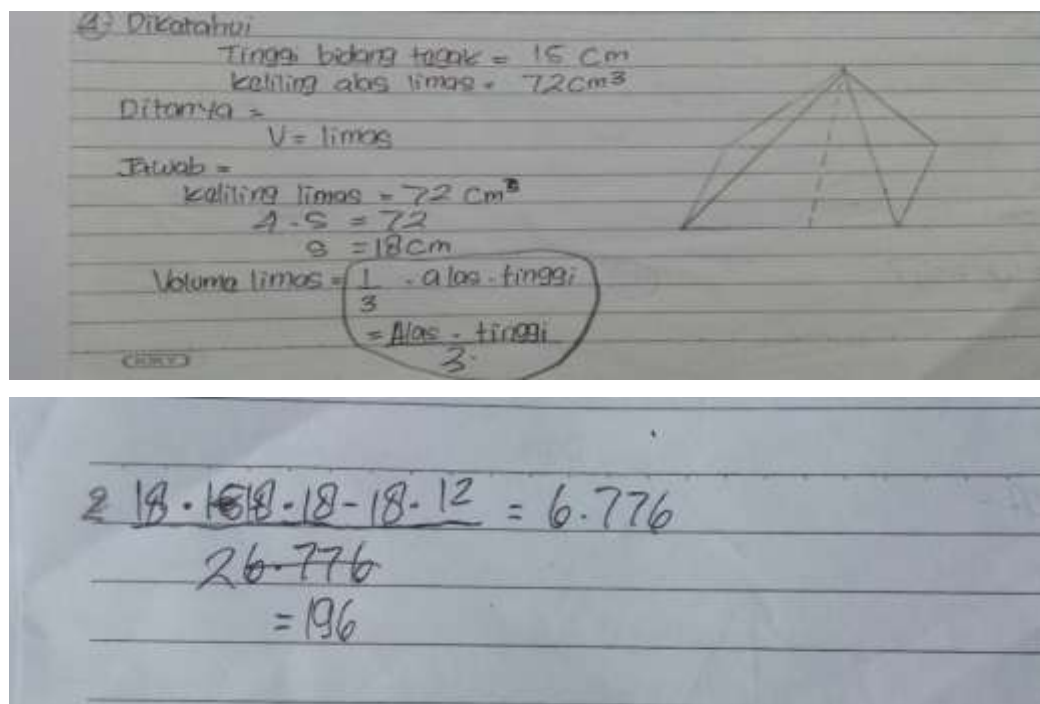 4) Dikatahui
Tinggi bidang tagak = 15 cm
kaliling alas limas = 72 cm³
Ditanya =
V = limas
Jawab =
kaliling limas = 72 cm³
4 . S = 72
S = 18 cm
Voluma limas = 1/3 . alas . tinggi
= Alas . tinggi / 3
18 . 18 . 18 - 18 . 12 = 6.776
26.776
= 196